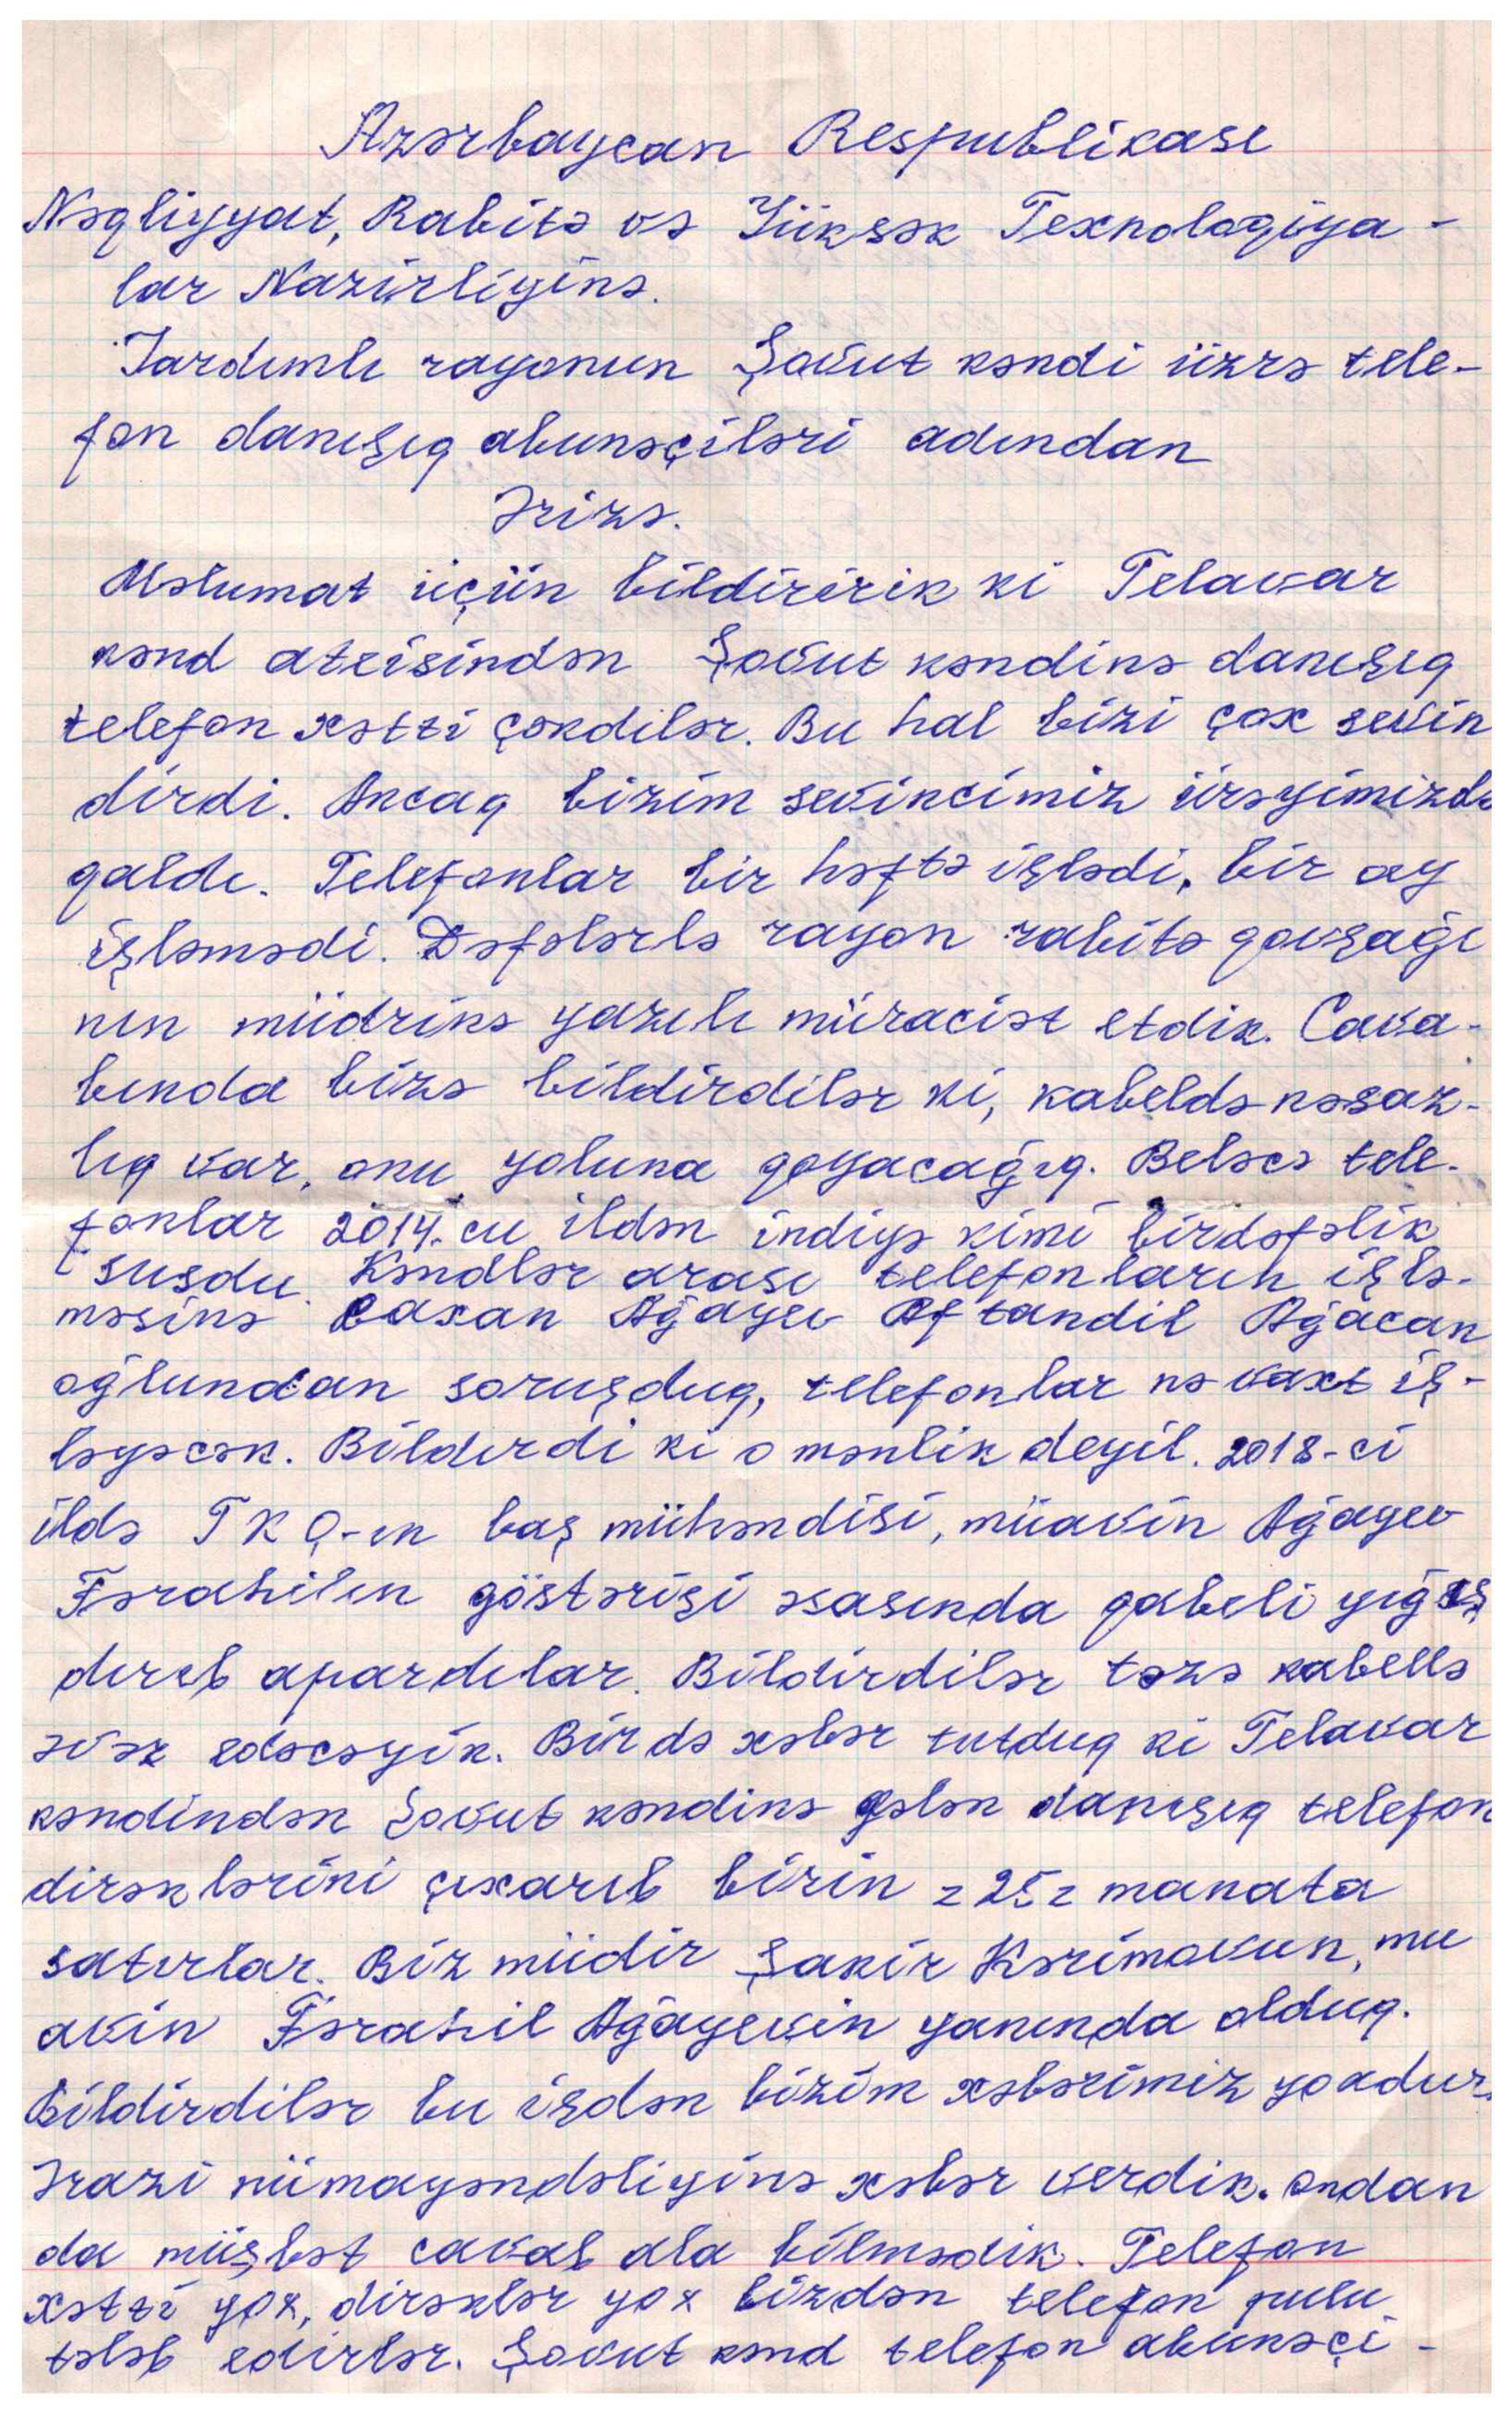 Azərbaycan Respublikası
Nəqliyyat, Rabitə və Yüksək Texnologiya-
lar Nazirliyinə.
Yardımlı rayonun Şovut kəndi üzrə tele-
fon danışıq abunəçiləri adından
Ərizə.
Məlumat üçün bildiririk ki Telavar
kənd ateisindən Şovut kəndinə danışıq
telefon xətti çəkdilər. Bu hal bizi çox sevin
dirdi. Ancaq bizim sevincimiz ürəyimizdə
qaldı. Telefonlar bir həftə işlədi, bir ay
işləmədi. Dəfələrlə rayon rabitə qovşağı
nın müdrinə yazılı müraciət etdik. Cava-
bında bizə bildirdilər ki, kabeldə nəsaz-
lıq var, onu yoluna qoyacağıq. Beləcə tele-
fonlar 2014-cu ildən indiyə kimi birdəfəlik
susdu. Kəndlər arası telefonların işlə-
məsinə baxan Ağayev Aftandil Ağacan
oğlundan soruşduq, telefonlar nə vaxt iş-
ləyəcək. Bildirdi ki o mənlik deyil. 2018-ci
ildə TKQ-ın baş mühəndisi, müavin Ağayev
Fərahilin göstərişi əsasında qabeli yığış
dırıb apardılar. Bildirdilər təzə kabellə
əvəz edəcəyik. Bir də xəbər tutduq ki Telavar
kəndindən Şovut kəndinə gələn danışıq telefon
dirəklərini çıxarıb birin =25= manata
satırlar. Biz müdir Şakir Kərimovun, mu
avin Fərahil Ağayevin yanında olduq.
Bildirdilər bu işdən bizim xəbərimiz yoxdur.
Ərazi nümayəndəliyinə xəbər verdik. ondan
da müşbət cavab ala bilmədik. Telefon
xətti yox, dirəklər yox bizdən telefon pulu
tələb edirlər. Şovut kənd telefon abunəçi-